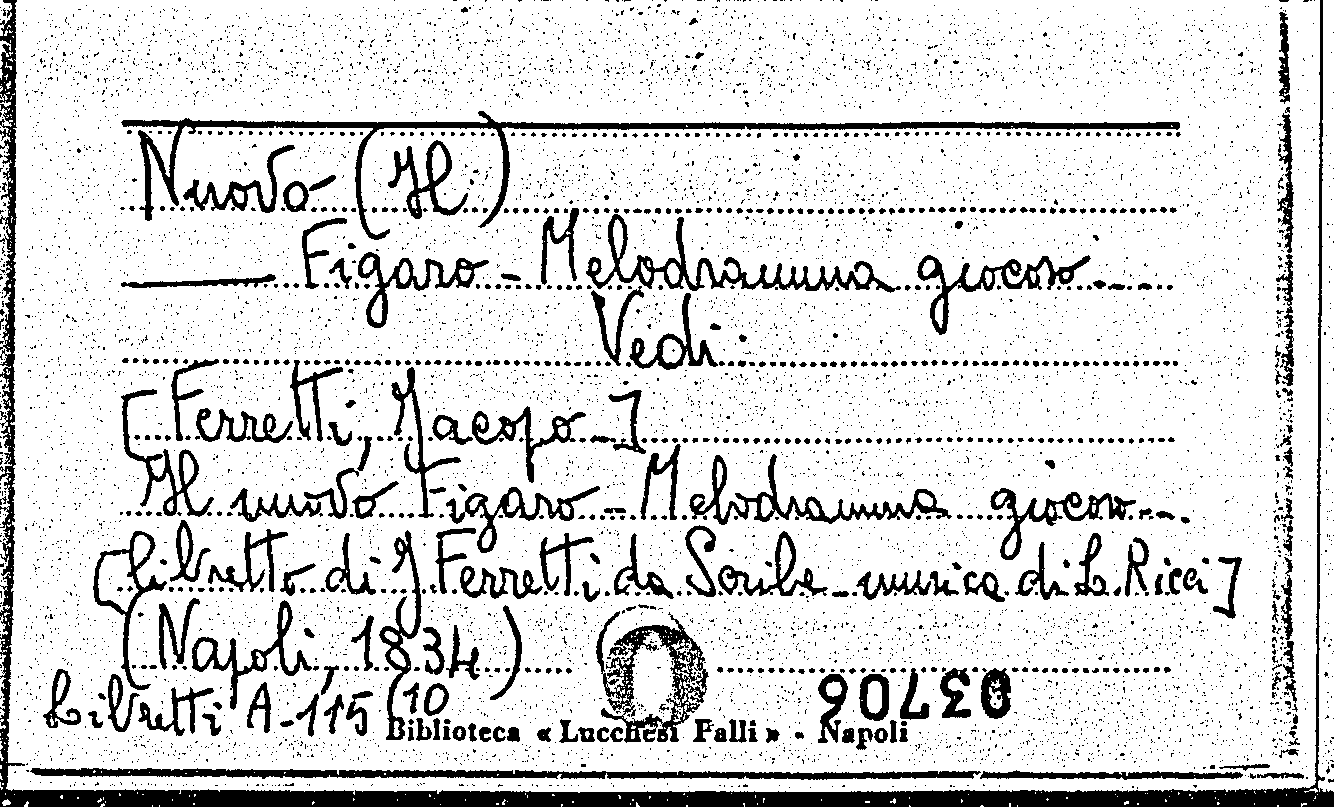 Nuovo (Il)
Figaro - Melodramma giocoso...
Vedi
[Ferretti, Jacopo -]
Il nuovo Figaro - Melodramma giocoso...
[Libretto di J. Ferretti da Scribe - musica di L. Ricci]
(Napoli, 1834)
Libretti A-115 (10
03706
Biblioteca « Lucchesi Falli » - Napoli